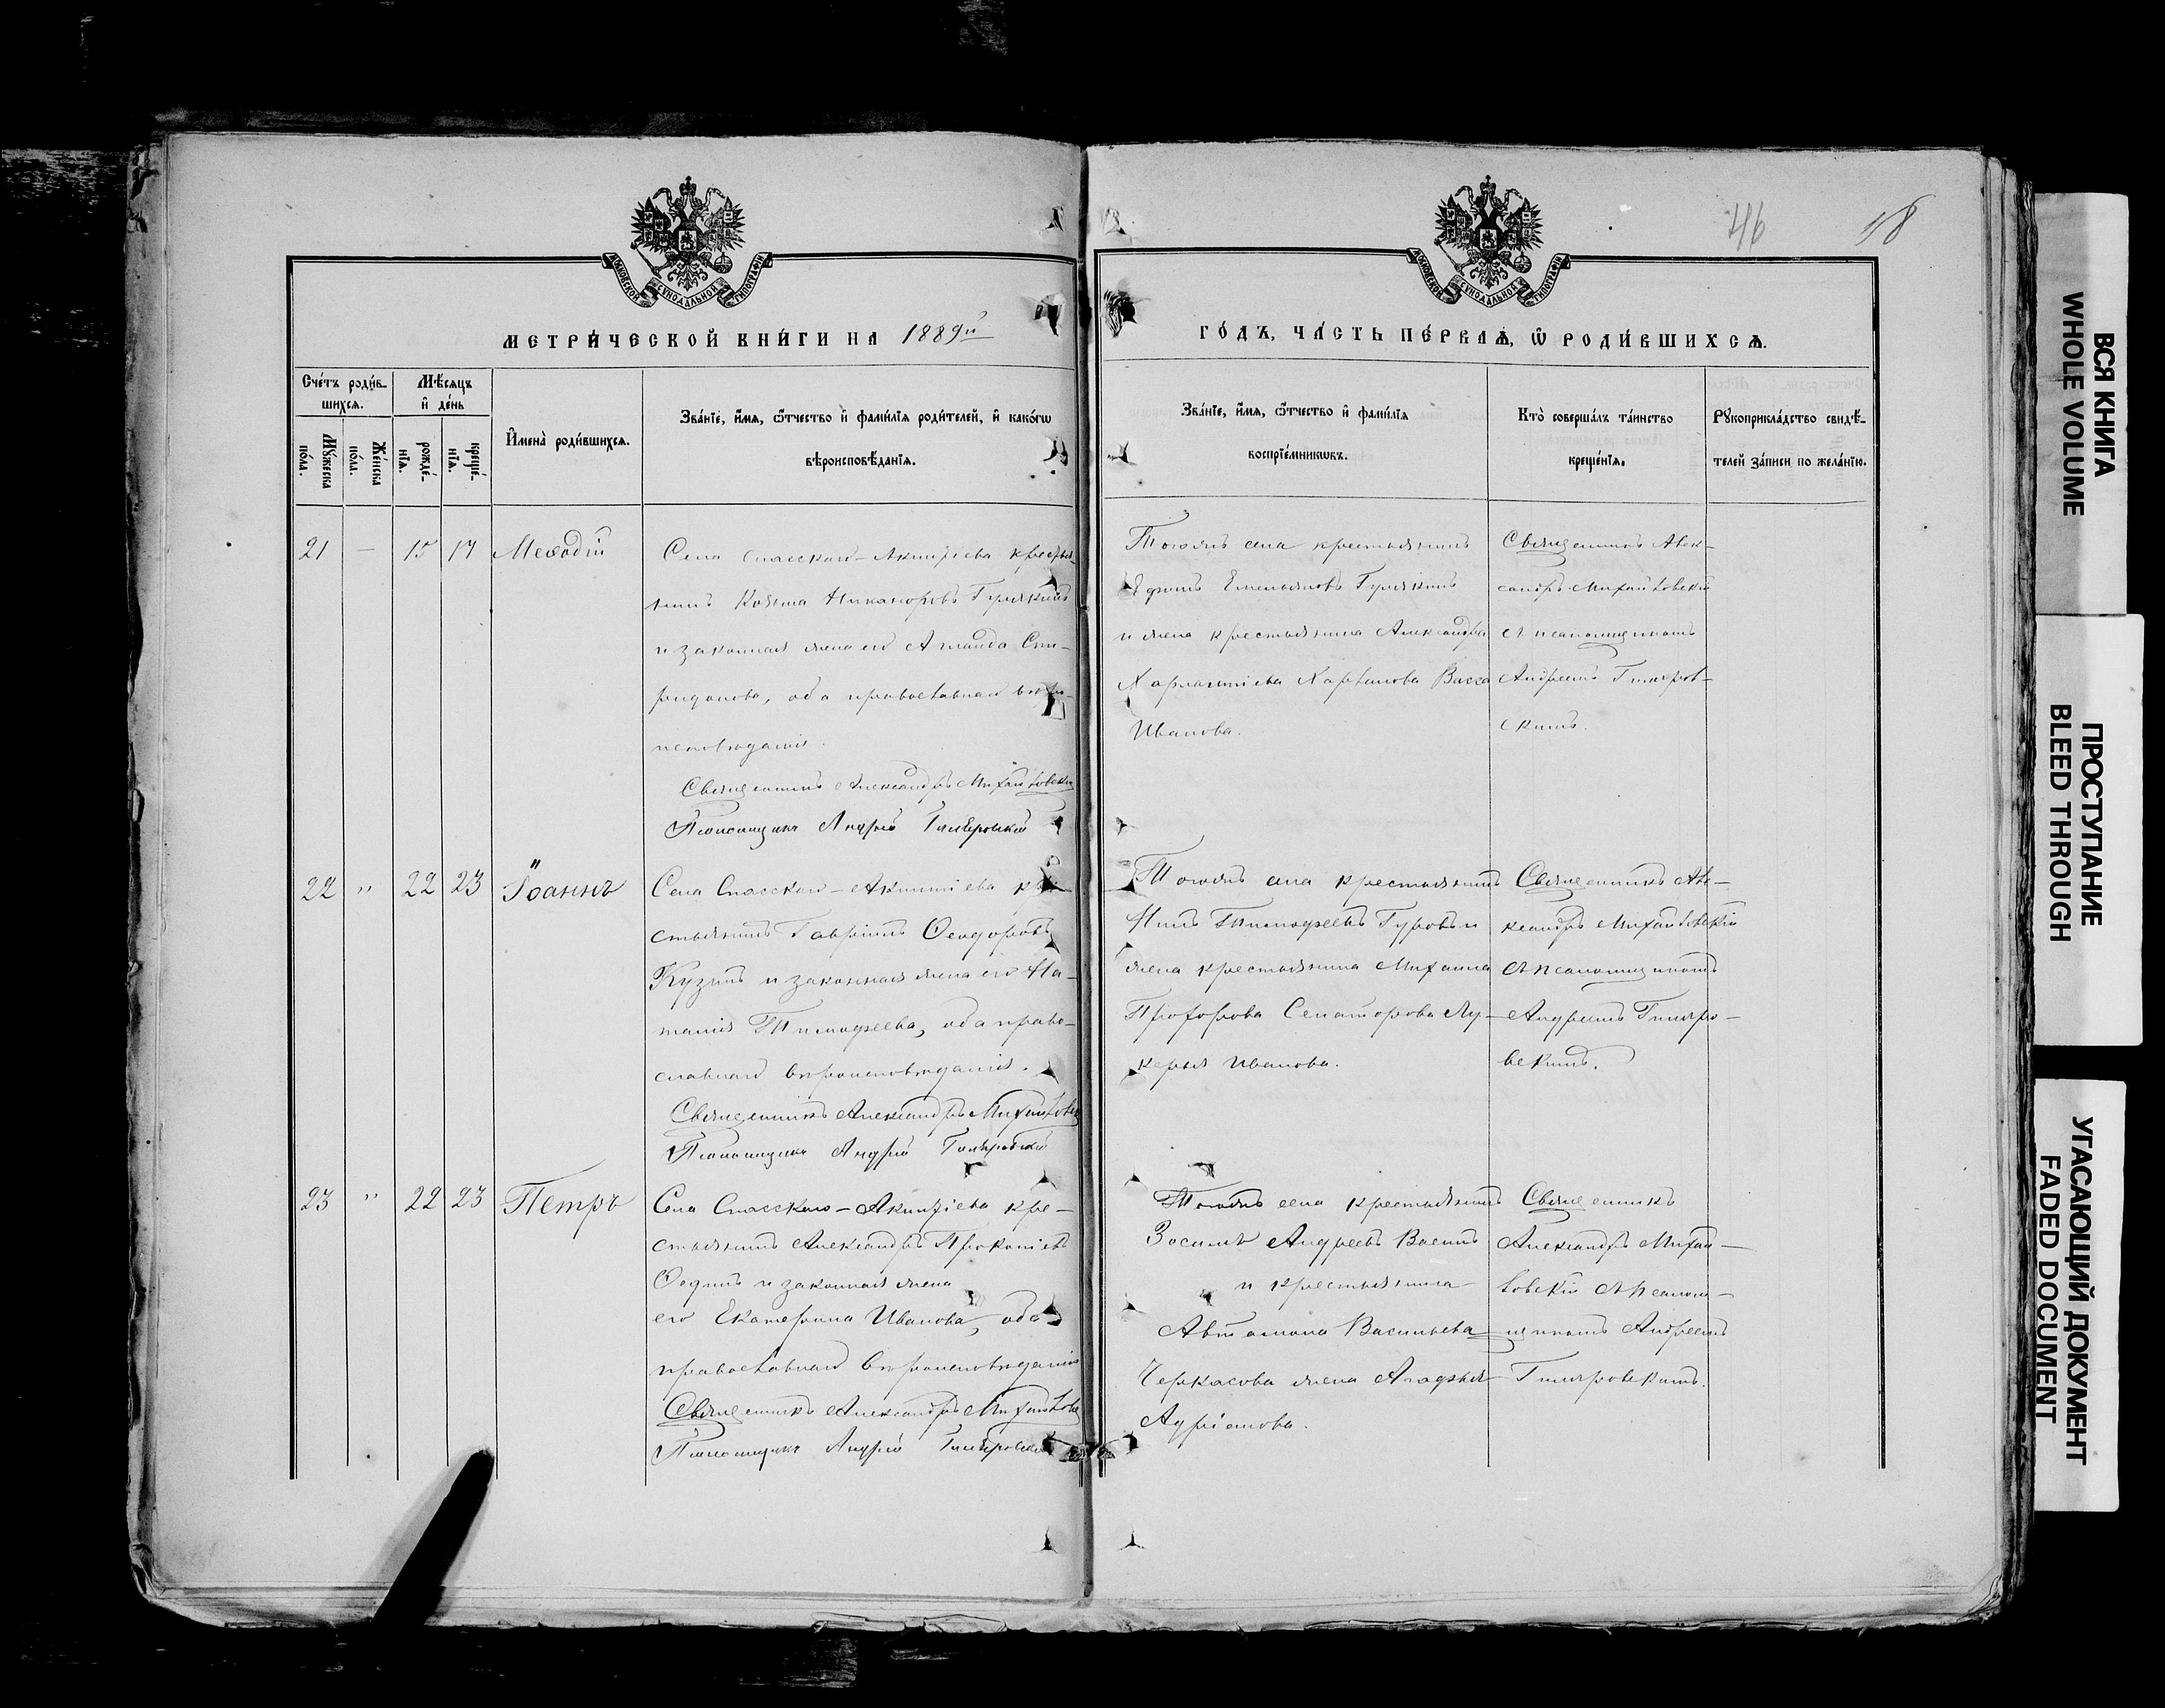 46
18
МОСКОВСКОЙ СУНОДАЛЬНОЙ ТИПОГРАФІИ
МОСКОВСКОЙ СУНОДАЛЬНОЙ ТИПОГРАФІИ
МЕТРИ́ЧЕСКОЙ КНИ́ГИ НА 1889й
ГО́ДЪ, ЧА́СТЬ ПЕ́РВАѦ, Ѡ РОДИ́ВШИХСѦ.
Сче́тъ роди́в-
шихсѧ.
Мꙋжеска
по́ла.
Же́нска
по́ла.
Мѣ́сѧцъ
и҆ де́нь
рожде́-
нїѧ.
креще́-
нїѧ.
И҆мена̀ роди́вшихсѧ.
Зва́нїе, и҆́мѧ, ѻ҆́тчество и҆ фами́лїѧ роди́телей, и҆ како́гѡ
вѣроисповѣ́данїѧ.
Зва́нїе, и҆́мѧ, ѻ҆́тчество и҆ фами́лїѧ
воспрїе́мникѡвъ.
Кто̀ соверша́лъ та́инство
креще́нїѧ.
Рꙋкоприкла́дство свидѣ́-
телей за́писи по жела́нїю.
21 — 15 17 Меѳодій
Села Спасскаго-Акинфіева крестья
нинъ Козьма Никаноровъ Гулякинъ
и законная жена его Спи-
ридонова, оба православнаго вѣро-
исповѣданія.
Священникъ Александръ Михайловскій
Псаломщикъ Андрей Гиляровскій
Тогожъ села крестьянинъ
Ефимъ Емельяновъ Гулякинъ
и жена крестьянина Александра
Харлампіева Васса
Иванова.
Священникъ Алек-
сандръ Михайловскій
съ псаломщикомъ
Андреемъ Гиляров-
скимъ.
22 " 22 23 Іоаннъ
Села Спасскаго-Акинфіева кре-
стьянинъ Гавріилъ Ѳеодоровъ
Кузинъ и законная жена его На-
талія Тимофеева, оба право-
славнаго вѣроисповѣданія.
Священникъ Александръ Михайловск
Псаломщикъ Андрей Гиляровскій
Тогожъ села крестьянинъ
Тимофеевъ Гуровъ и
жена крестьянина Михаила
Прохорова Сенаторова Лу-
керья Иванова.
Священникъ Але-
ксандръ Михайловскій
съ псаломщикомъ
Андреемъ Гиляро-
вскимъ.
23 " 22 23 Петръ
Села Спасскаго-Акинфіева кре-
стьянинъ Александръ Прокопіевъ
и законная жена
его Екатерина Иванова, оба
православнаго вѣроисповѣданія
Священникъ Александръ Михайловс
Псаломщикъ Андрей Гиляровскій
Тогожъ села крестьянинъ
Зосима Андреевъ
и крестьянина
Автамона Васильева
Черкасова жена Агафья
Адріанова.
Священникъ
Александръ Михай-
ловскій съ псалом-
щикомъ Андреемъ
Гиляровскимъ.
ВСЯ КНИГА
WHOLE VOLUME
ПРОСТУПАНИЕ
BLEED THROUGH
УГАСАЮЩИЙ ДОКУМЕНТ
FADED DOCUMENT